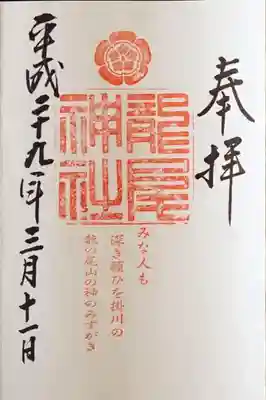 奉拝
龍尾神社
みな人も
深き願ひを掛川の
龍の尾山の神のみずがき
平成二十九年三月十一日